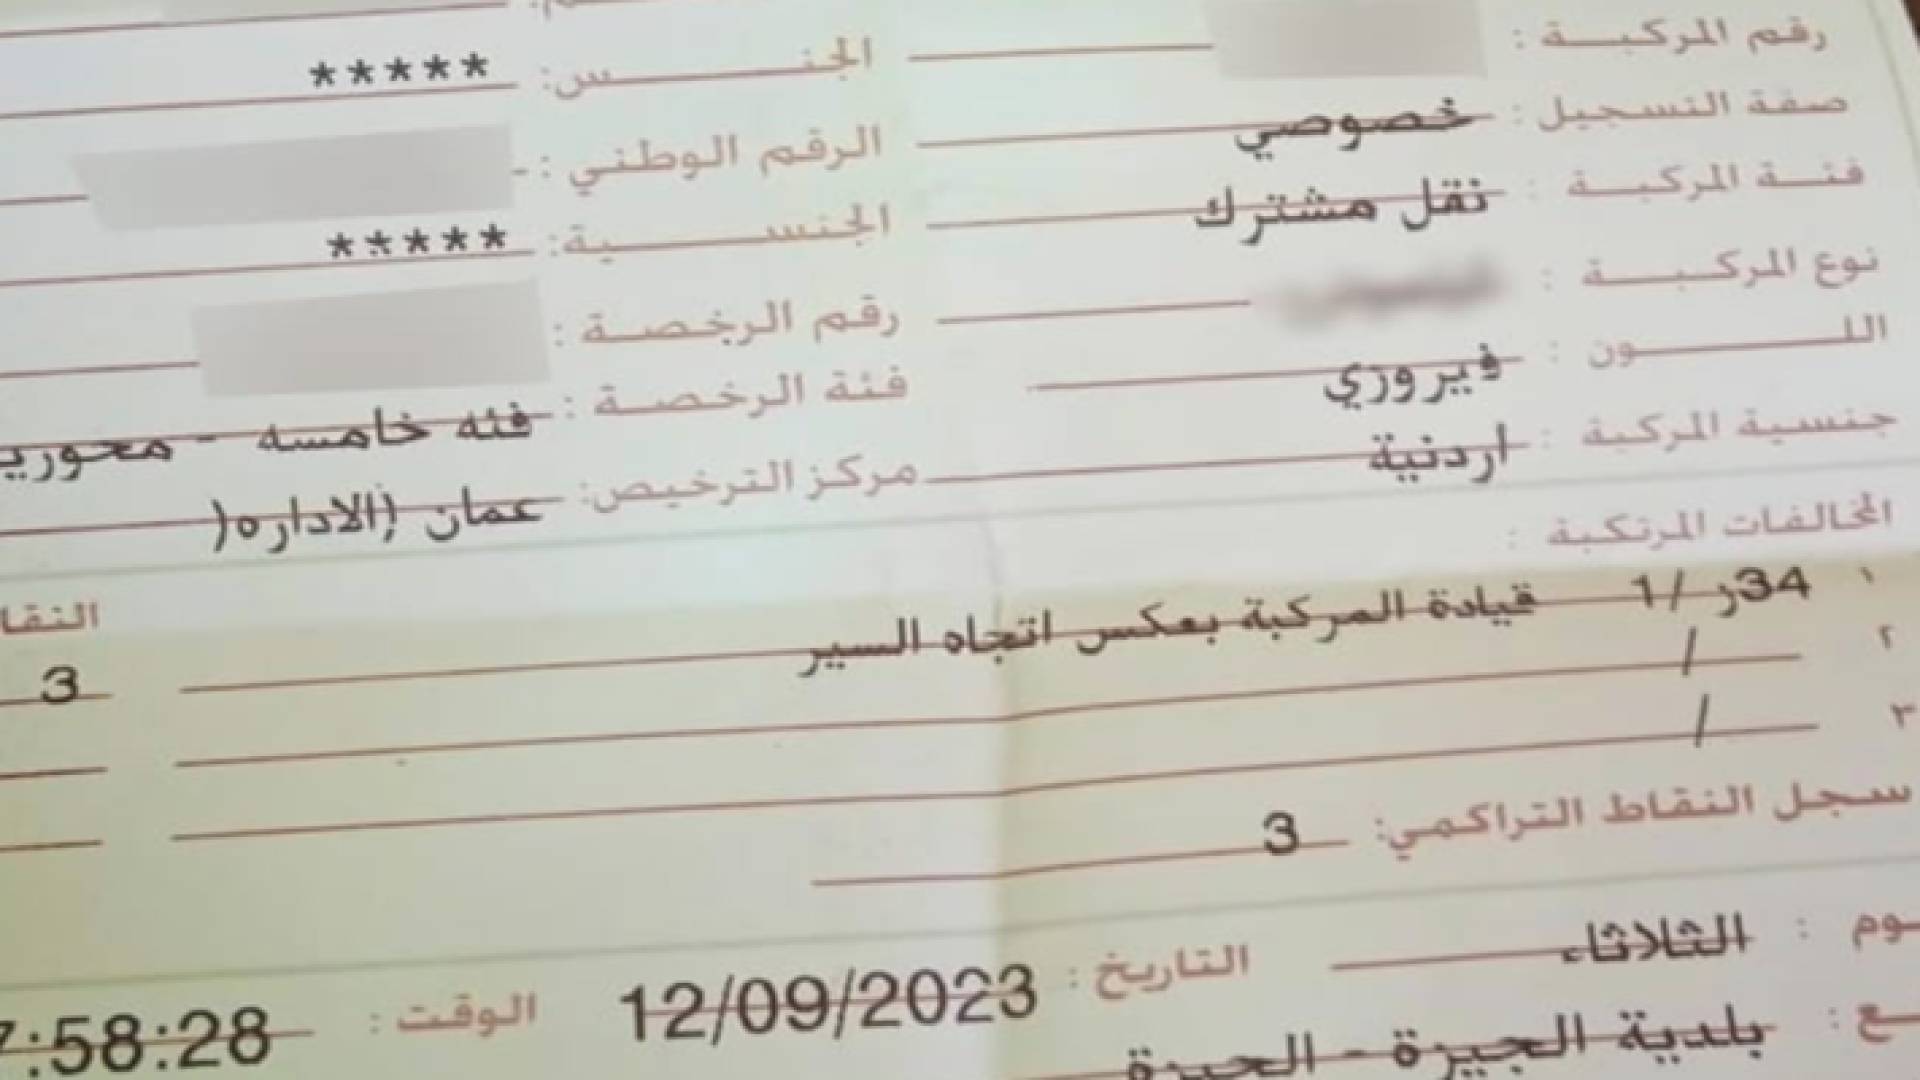 رقم المركبة :
الجنس: *****
صفة التسجيل : خصوصي
الرقم الوطني :
فئة المركبة : نقل مشترك
الجنسية: *****
نوع المركبة :
رقم الرخصة :
اللون : فيروزي
فئة الرخصة : فئه خامسه - محوريـ
جنسية المركبة : اردنية
مركز الترخيص: عمان (الاداره(
المخالفات المرتكبة :
النقا
١ 34ز /1 قيادة المركبة بعكس اتجاه السير 3
٢ /
٣ /
سجل النقاط التراكمي: 3
ـوم : الثلاثاء التاريخ : 12/09/2023 الوقت : 7:58:28
ـع : بلدية الجيزة - الجيزة